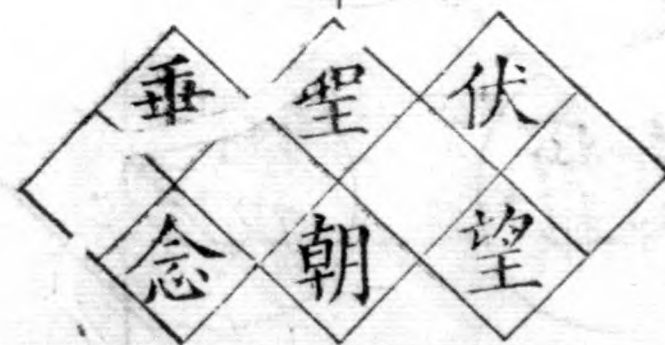 伏望
聖朝
垂念